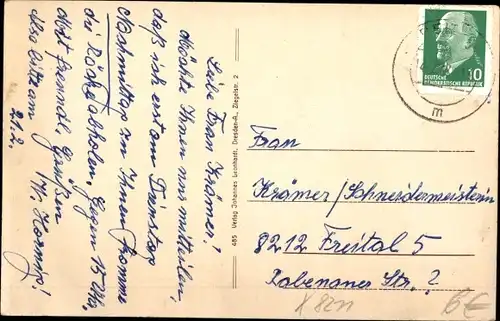 Liebe Frau Krämer!
Möchte Ihnen nur mitteilen,
daß ich erst am Dienstag
Nachmittag zu Ihnen komme
die Röcke abholen. Gegen 15 Uhr.
Mit freundl. Grüßen
Also bitte am
21.2.
485 Verlag Johannes Leonhardt, Dresden-A., Ziegelstr. 2
DEUTSCHE
DEMOKRATISCHE REPUBLIK
10
m
Frau
Krämer/Schneidermeisterin
8212 Freital 5
Rabenauer Str. ?
6€